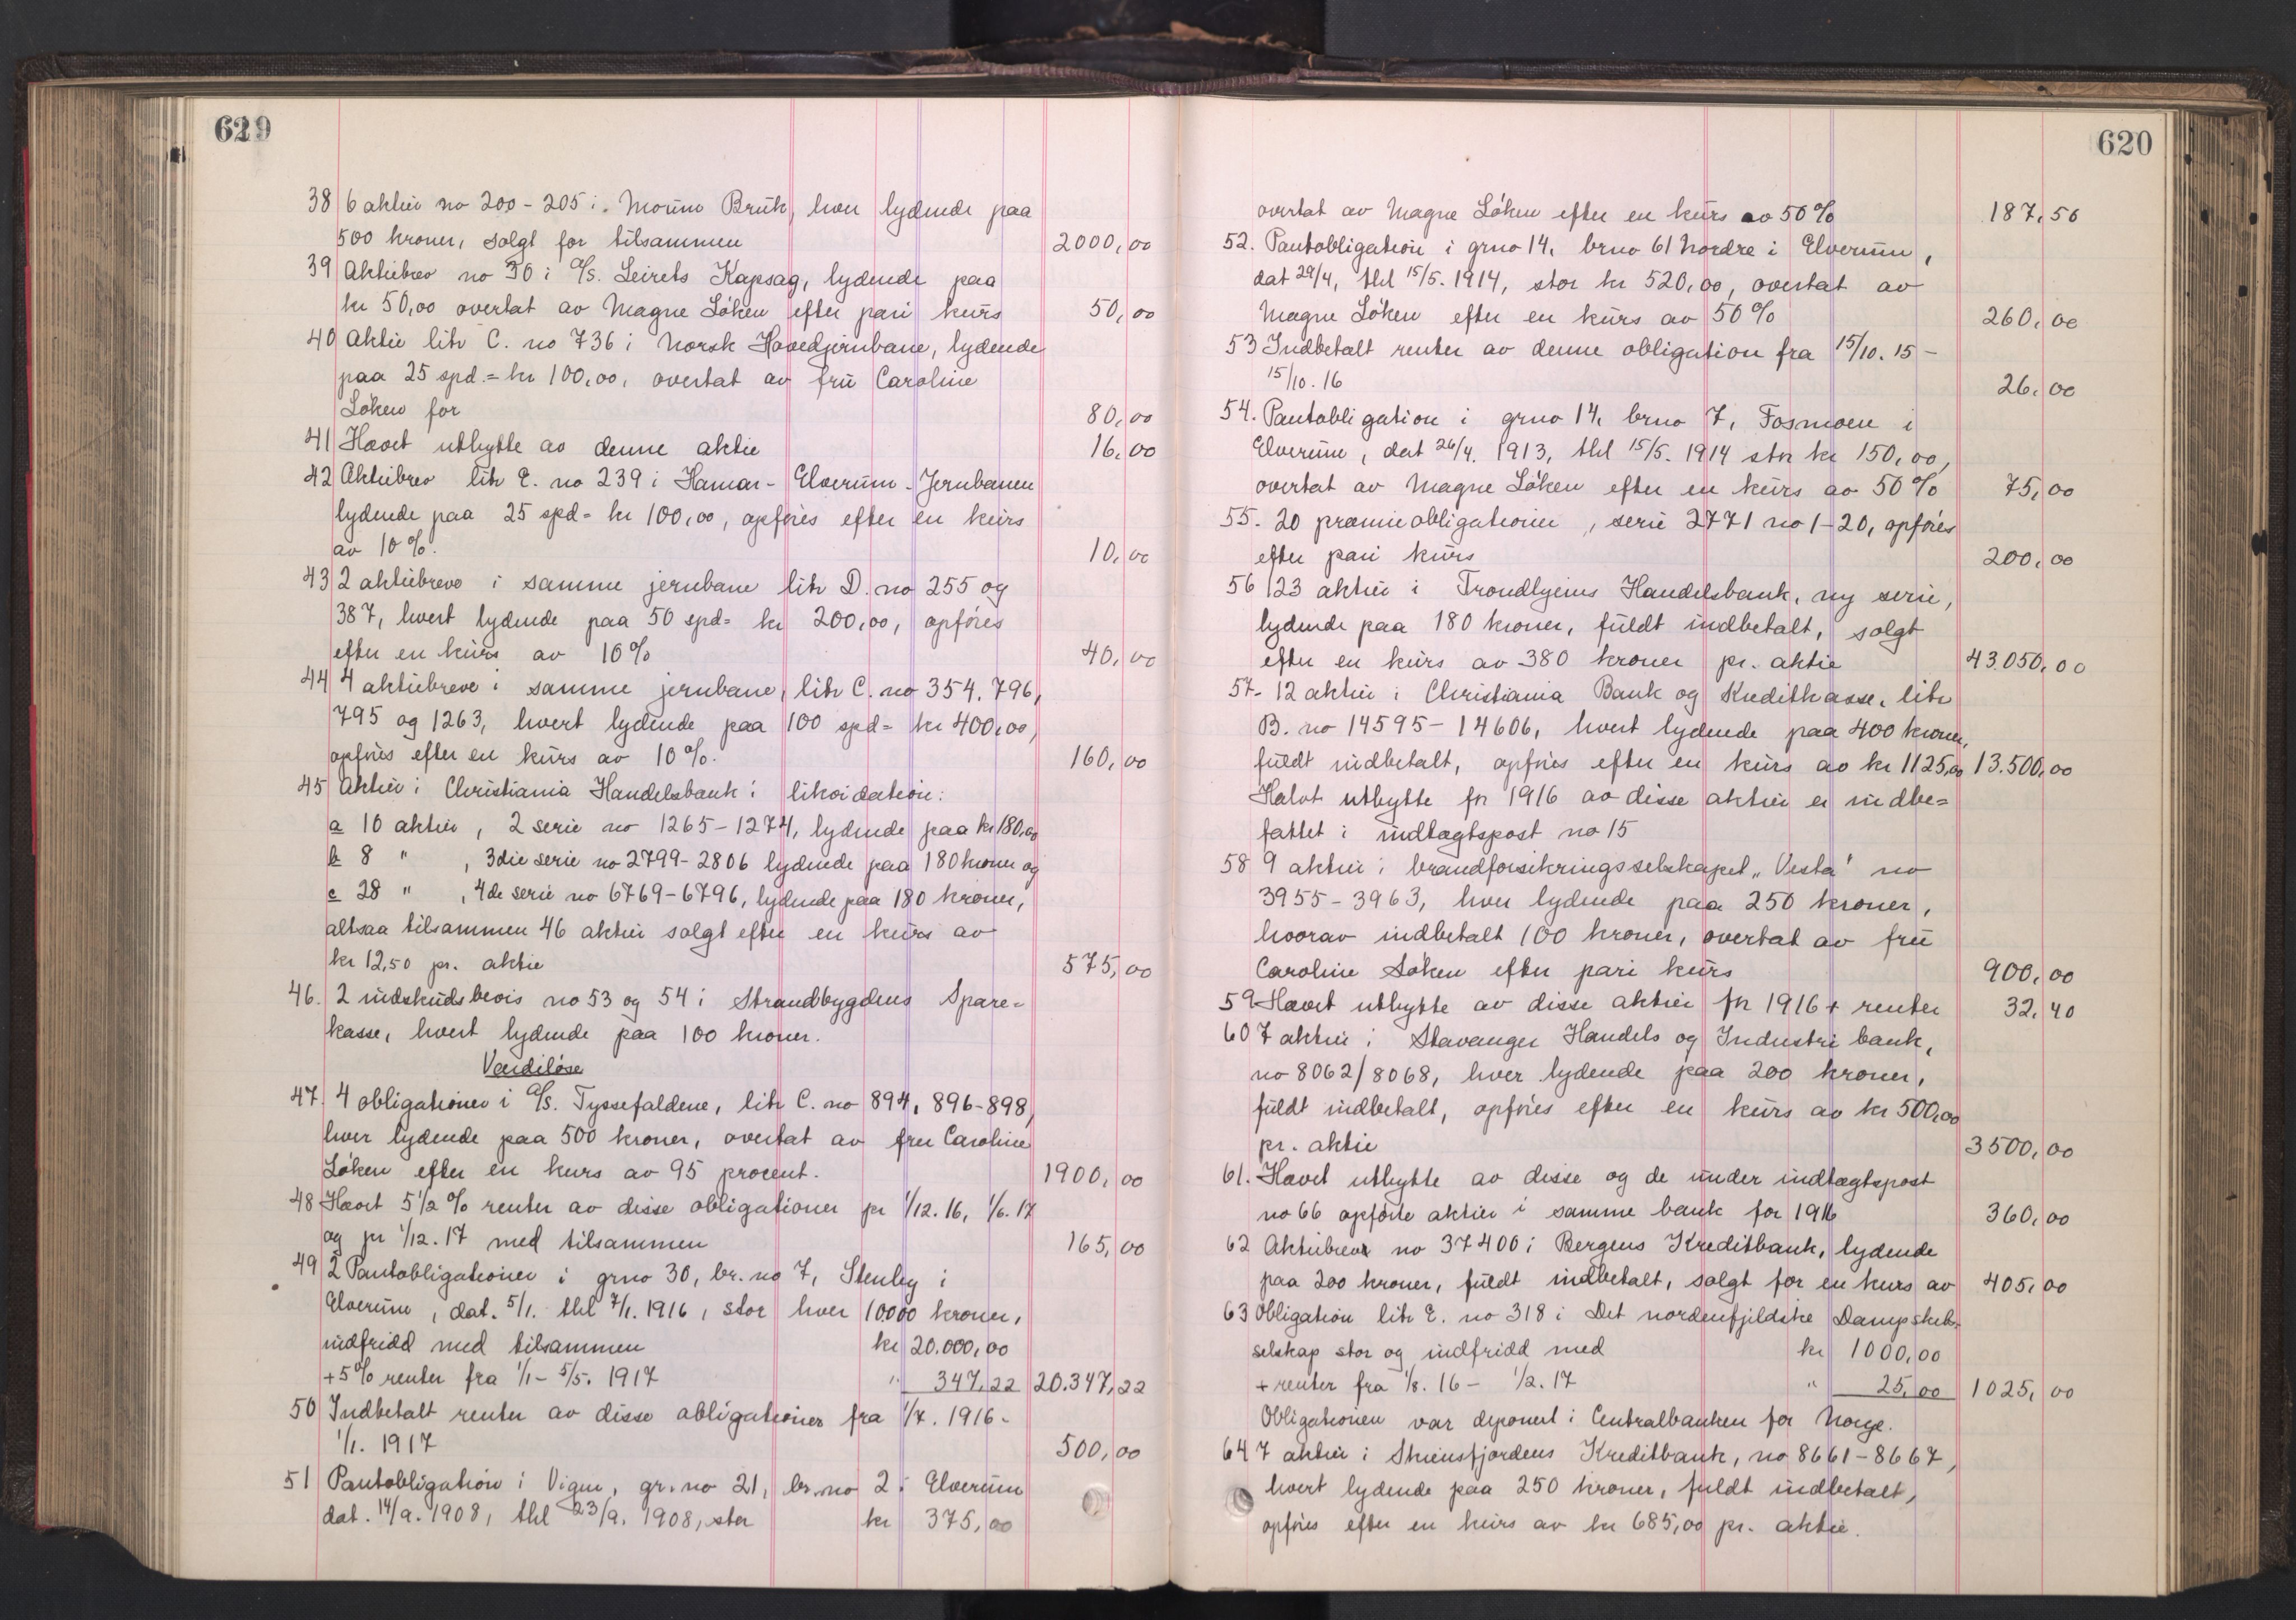 629
38 6 aktier no 200-205 i. Moum Bruk, hver lydende paa
500 kroner, solgt for tilsammen 2000,00
39 Aktiebrev no 30 i A/S. Leirets Kapsag, lydende paa
kr 50,00 overtat av Magne Löken efter pari kurs 50,00
40 Aktie litr C. no 736 i Norsk Hovedjernbane, lydende
paa 25 spd. = kr 100,00, overtat av fru Caroline
Löken for 80,00
41 Hævet utbytte av denne aktie 16,00
42 Aktiebrev litr E. no 239 i Hamar-Elverum-Jernbanen
lydende paa 25 spd = kr 100,00, opföres efter en kurs
av 10%. 10,00
43 2 aktiebreve i samme jernbane litr D. no 255 og
387, hvert lydende paa 50 spd = kr 200,00, opföres
efter en kurs av 10% 40,00
44 4 aktiebreve i samme jernbane, litr C. no 354. 796,
795 og 1263, hvert lydende paa 100 spd = kr 400,00,
opföres efter en kurs av 10%. 160,00
45 Aktier i Christiania Handelsbank i likvidation:
a 10 aktier, 2 serie no 1265-1274, lydende paa kr 180,00
b 8 " , 3die serie no 2799-2806 lydende paa 180 kroner og
c 28 " , 4de serie no 6769-6796, lydende paa 180 kroner,
altsaa tilsammen 46 aktier solgt efter en kurs av
kr 12,50 pr. aktie 575,00
46. 2 indskudsbevis no 53 og 54 i Strandbygdens Spare=
kasse, hvert lydende paa 100 kroner.
Værdilöse
47. 4 obligationer i A/S. Tyssefaldene, litr C. no 894, 896-898,
hver lydende paa 500 kroner, overtat av fru Caroline
Löken efter en kurs av 95 procent. 1900,00
48 Hævet 5 1/2 % renter av disse obligationer pr 1/12. 16, 1/6. 17
og pr 1/12. 17 med tilsammen 165,00
49 2 Pantobligationer i grno 30, br. no 7, Stenby i
Elverum, dat. 5/1. thl 7/1. 1916, stor hver 10000 kroner,
indfridd med tilsammen kr 20.000,00
+ 5% renter fra 1/1 - 5/5. 1917 " 347,22 20.347,22
50 Indbetalt renter av disse obligationer fra 1/7. 1916-
1/1. 1917 500,00
51 Pantobligation i Vigen, gr. no 21, br. no 2 i Elverum
dat. 14/9. 1908, thl 23/9. 1908, stor kr 375,00
620
overtat av Magne Löken efter en kurs av 50% 187,50
52. Pantobligation i grno 14, brno 61 Nordre i Elverum,
dat 29/4, thl 15/5. 1914, stor kr 520,00, overtat av
Magne Löken efter en kurs av 50% 260,00
53 Indbetalt renter av denne obligation fra 15/10. 15 -
15/10. 16 26,00
54. Pantobligation i grno 14, brno 7, Fosmoen i
Elverum, dat 26/4. 1913, thl 15/5. 1914 stor kr 150,00,
overtat av Magne Löken efter en kurs av 50% 75,00
55. 20 præmieobligationer, serie 2771 no 1-20, opföres
efter pari kurs 200,00
56 123 aktier i Trondhjems Handelsbank, ny serie,
lydende paa 180 kroner, fuldt indbetalt, solgt
efter en kurs av 380 kroner pr. aktie 43.050,00
57. 12 aktier i Christiania Bank og Kreditkasse, litr
B. no 14595-14606, hvert lydende paa 400 kroner,
fuldt indbetalt, opföres efter en kurs av kr 1125,00 13.500,00
Halvt utbytte for 1916 av disse aktier er indbe=
fattet i indtægtspost no 15
58 9 aktier i brandforsikringsselskapet "Vesta" no
3955-3963, hver lydende paa 250 kroner,
hvorav indbetalt 100 kroner, overtat av fru
Caroline Löken efter pari kurs 900,00
59 Hævet utbytte av disse aktier for 1916 + renter 32,40
60 7 aktier i Stavanger Handels og Industri bank,
no 8062/8068, hver lydende paa 200 kroner,
fuldt indbetalt, opföres efter en kurs av kr 500,00
pr. aktie 3500,00
61. Hævet utbytte av disse og de under indtægtspost
no 66 opförte aktier i samme bank for 1916 360,00
62 Aktiebrev no 37400 i Bergens Kreditbank, lydende
paa 200 kroner, fuldt indbetalt, solgt for en kurs av 405,00
63 Obligation litr E. no 318 i Det nordenfjeldske Dampskibs=
selskap stor og indfridd med kr 1000,00
+ renter fra 1/8. 16 - 1/2. 17 " 25,00 1025,00
Obligationen var deponert i Centralbanken for Norge.
64 7 aktier i Skiensfjordens Kreditbank, no 8661-8667,
hvert lydende paa 250 kroner, fuldt indbetalt,
opföres efter en kurs av kr 685,00 pr. aktie.